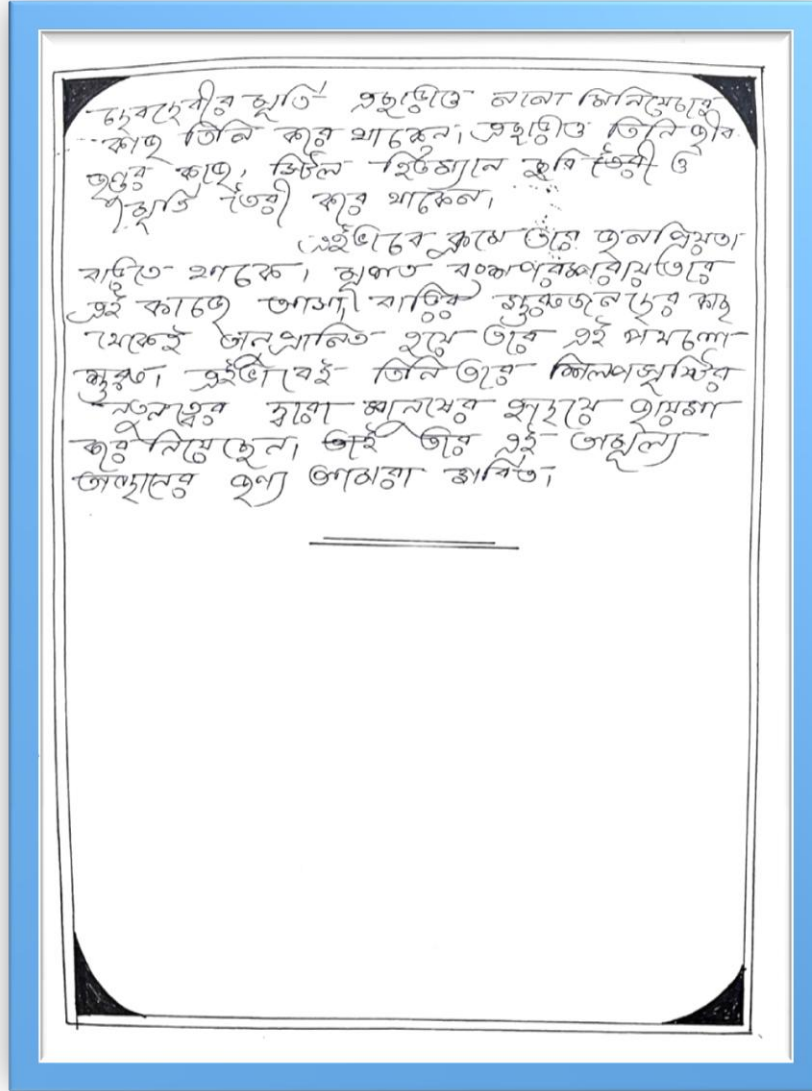 দেবদেবীর মূর্তি এছাড়াও নানা মিনিয়েচার
কাজ তিনি করে থাকেন। এছাড়াও তিনি জীব
জন্তুর কাজ, স্টিল হিউম্যান ছবি তৈরী ও
মূর্তি তৈরী করে থাকেন।
এইভাবে ক্রমে তার জনপ্রিয়তা
বাড়তে থাকে। মূলত বংশপরম্পরায় তার
এই কাজে আসা। বাড়ির গুরুজনদের কাছ
থেকেই অনুপ্রানিত হয়ে তার এই পথচলা
শুরু। এইভাবেই তিনি তার শিল্পসৃষ্টির
নতুনত্বের দ্বারা মানুষের হৃদয়ে জায়গা
করে নিয়েছেন। তাই তার এই অমূল্য
অবদানের জন্য আমরা গর্বিত।